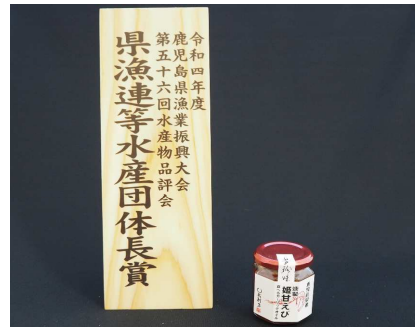 令和四年度
鹿児島県漁業振興大会
第五十六回水産物品評会
県漁連等水産団体長賞
姫甘えび